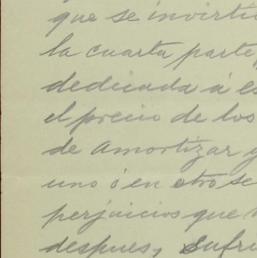 que se invirti
la cuarta parte
dedicada á es
el precio de los
de amortizar y
uno ó en otro se
perjuicios que
despues, sufri